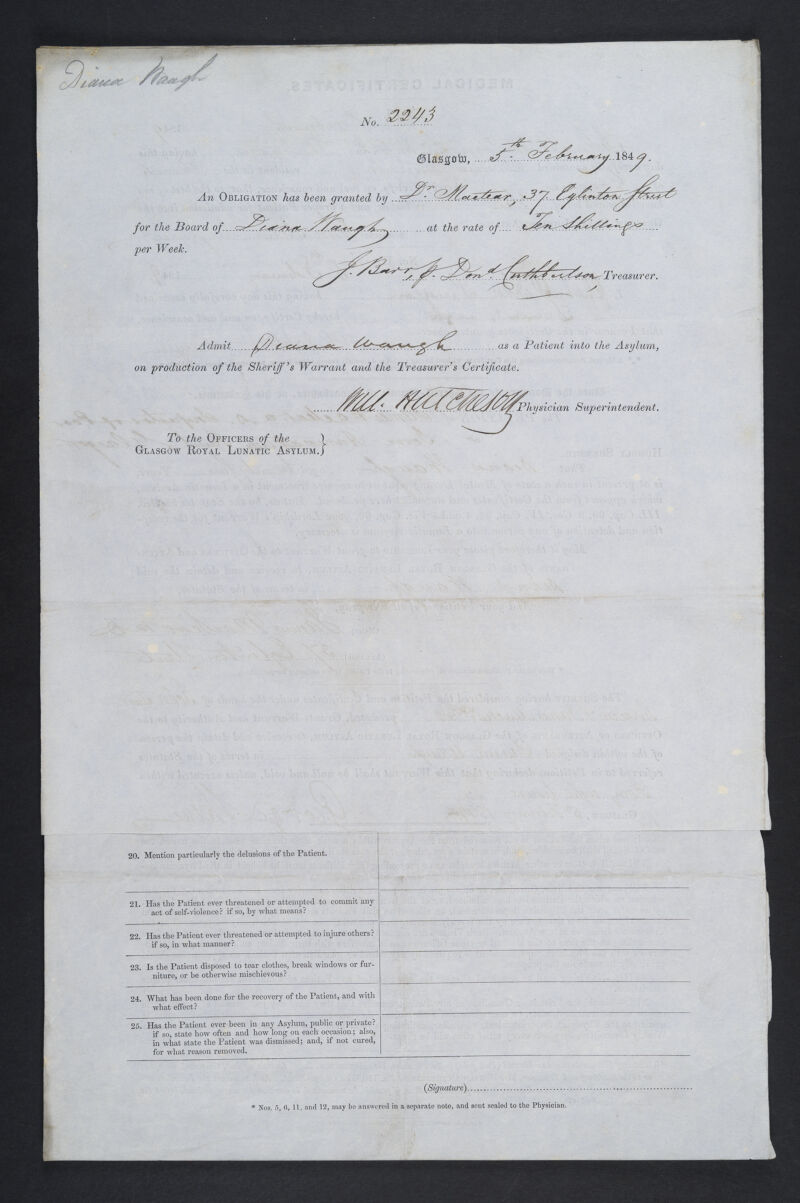 Diana Waugh
No. 2243
Glasgow, 5th February 1849.
An Obligation has been granted by Dr. Mactear, 37 Eglinton Street
for the Board of Diana Waugh at the rate of Ten Shillings
per Week.
J. Barr, p. Dond. Cuthbertson, Treasurer.
Admit Diana Waugh as a Patient into the Asylum,
on production of the Sheriff's Warrant and the Treasurer's Certificate.
Will. Hutcheson Physician Superintendent.
To the Officers of the
Glasgow Royal Lunatic Asylum.}
20. Mention particularly the delusions of the Patient.
21. Has the Patient ever threatened or attempted to commit any
act of self-violence? if so, by what means?
22. Has the Patient ever threatened or attempted to injure others?
if so, in what manner?
23. Is the Patient disposed to tear clothes, break windows or fur-
niture, or be otherwise mischievous?
24. What has been done for the recovery of the Patient, and with
what effect?
25. Has the Patient ever been in any Asylum, public or private?
if so, state how often and how long on each occasion; also,
in what state the Patient was dismissed; and, if not cured,
for what reason removed.
(Signature)
* Nos. 5, 6, 11, and 12, may be answered in a separate note, and sent sealed to the Physician.